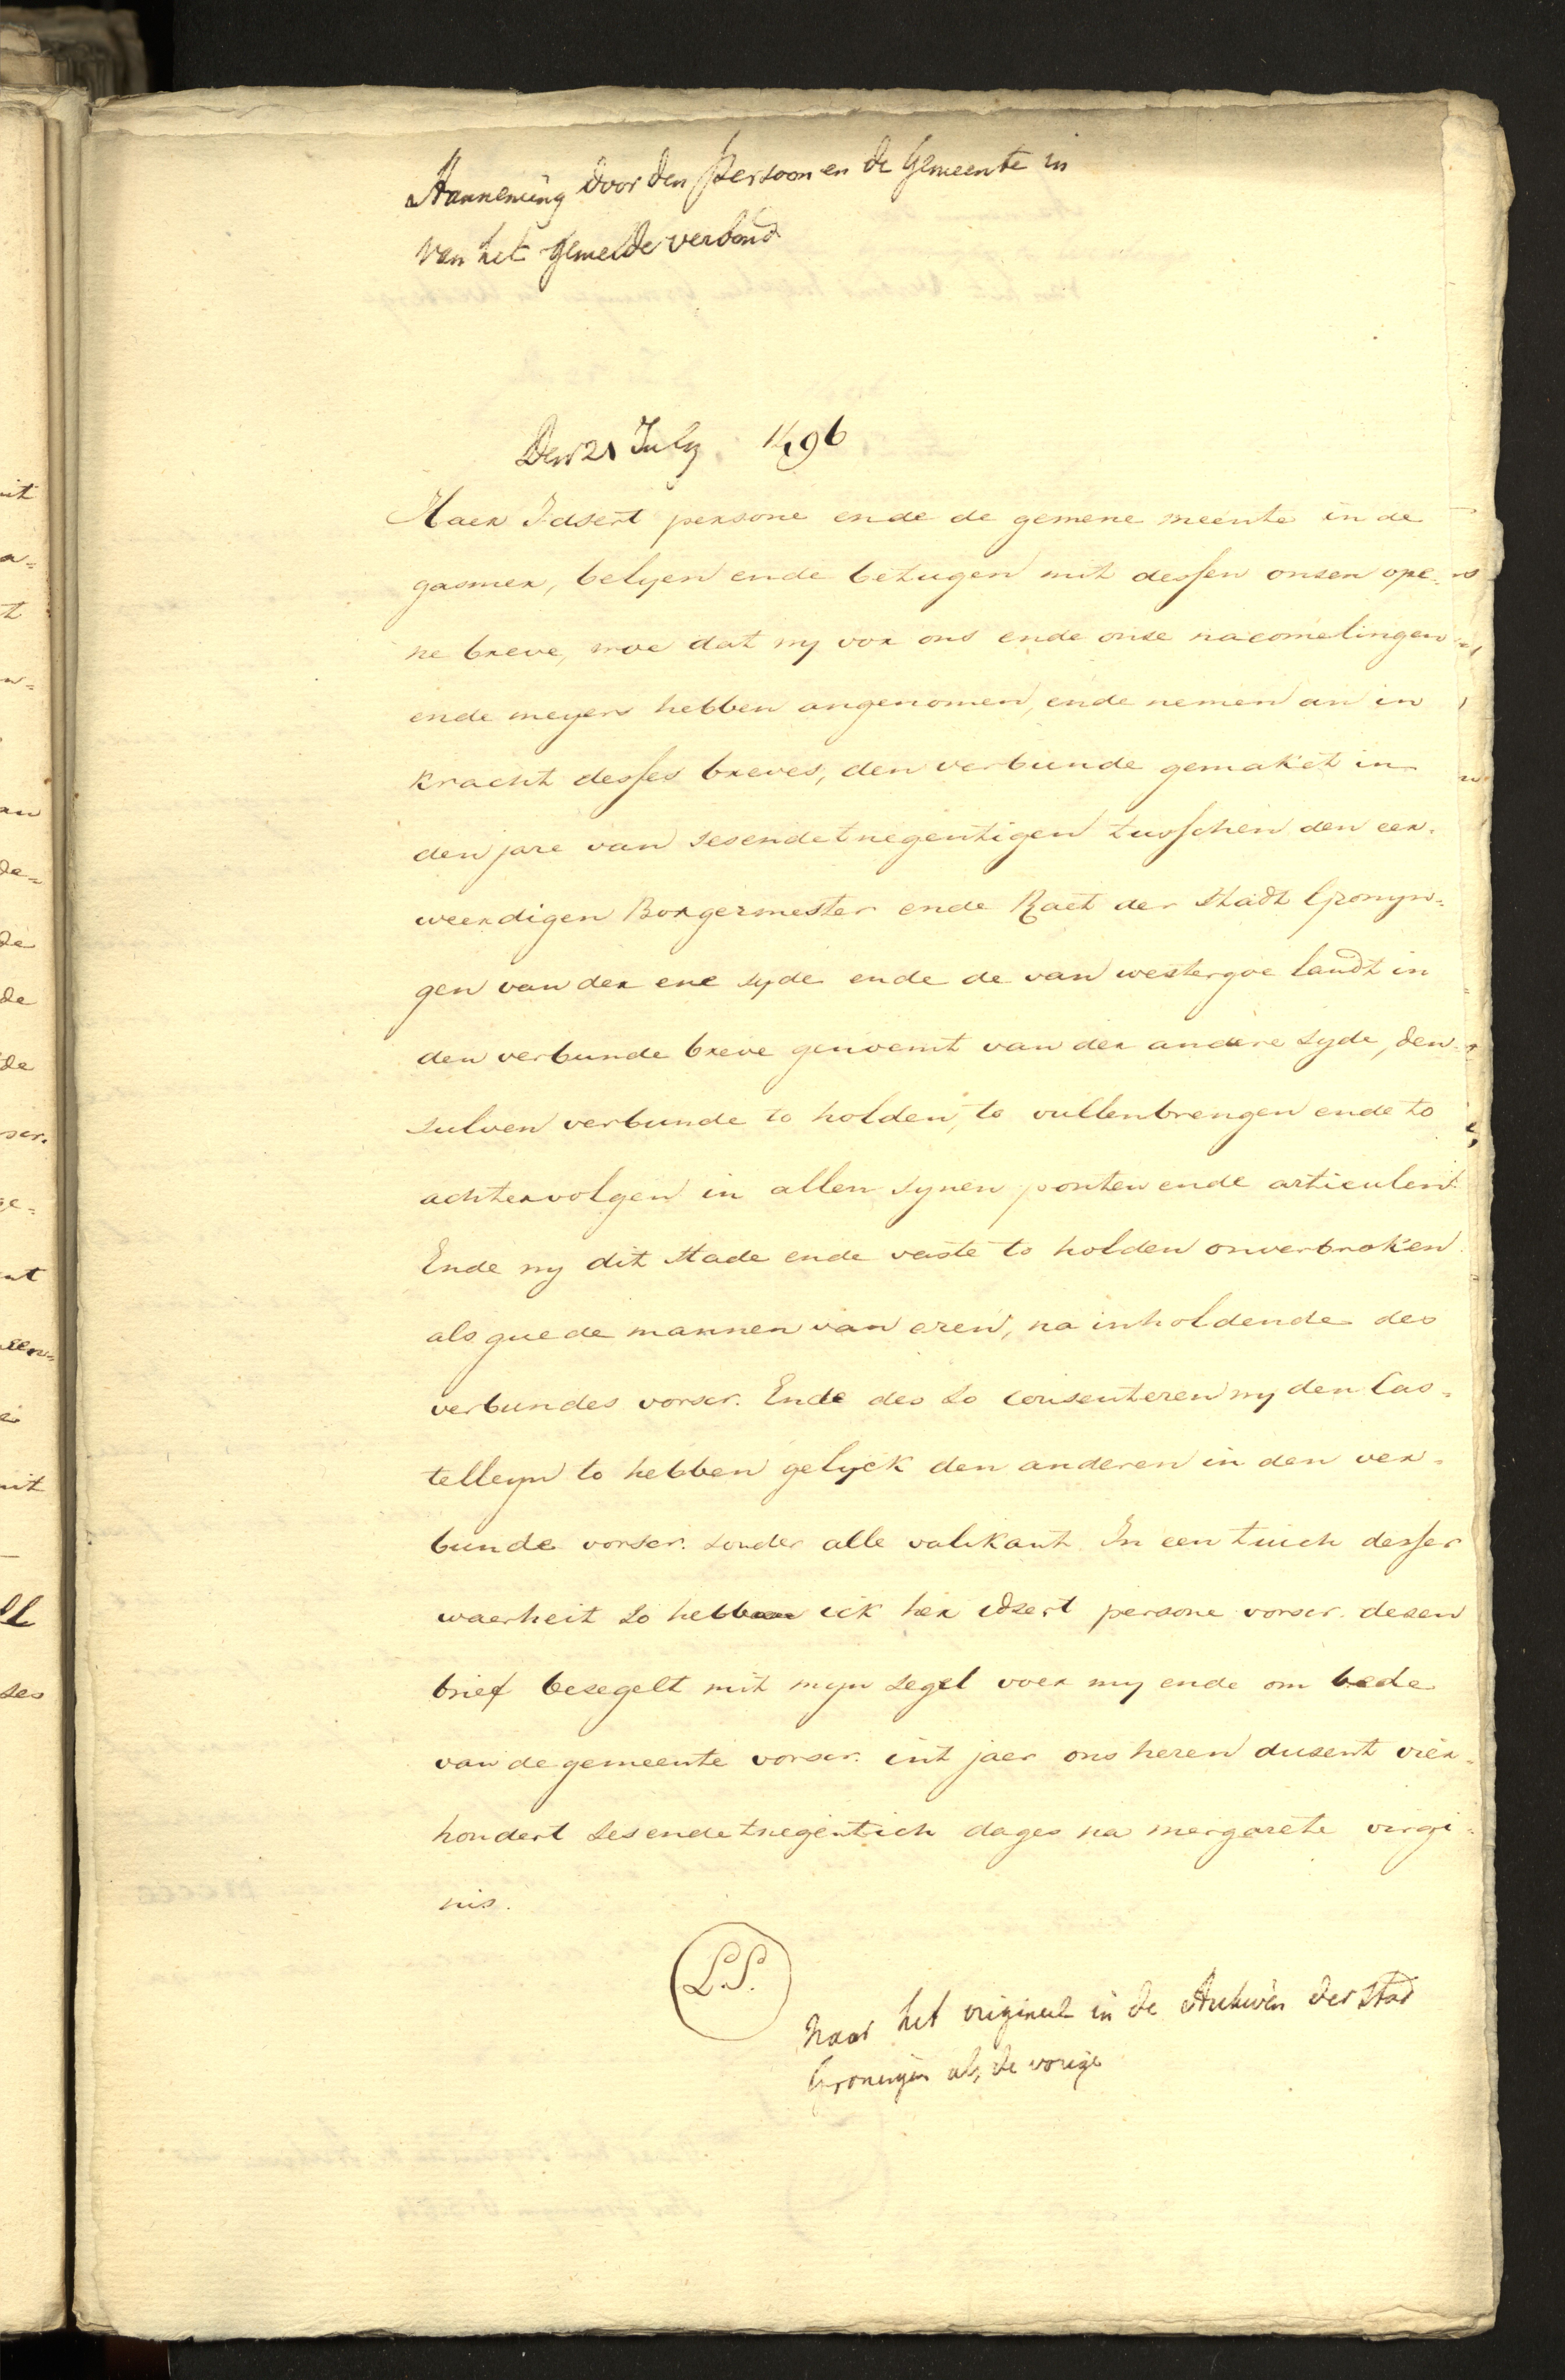 Aanneming door den Persoon en de Gemeente in
van het gemelde verbond
Den 21 July 1496
Haer Idsert persone ende de gemene meente in de
gasmer, belyen ende betugen mit dessen onsen ope-
ne breve, woe dat wy vor ons ende onse nacomelingen
ende meyers hebben angenomen, ende nemen an in
kracht desses breves, den verbunde gemaket in
den jare van sesendetnegentigen tusschen den eer-
weerdigen Borgermester ende Raet der Stadt Gronyn-
gen van der ene syde ende de van westergoe landt in
den verbunde breve genoemt van der andere syde, den
sulven verbunde to holden, to vullenbrengen ende to
achtervolgen in allen synen ponten ende articulen.
Ende wy dit stade ende vaste to holden onverbroken
als guede mannen van eren, na inholdende des
verbundes vorscr. Ende des so consenteren wy den Cas-
telleyn to hebben gelyck den anderen in den ver-
bunde vorscr. sonder alle valikant In een tuich desser
waerheit so hebbe ick her idsert persone vorscr. desen
brief besegelt mit myn segel voer my ende om bede
van de gemeente vorscr. int jaer ons heren dusent vier-
hondert sesendetnegentich dages na mergarete virgi-
nis.
L.S.
Naar het origineel in de Archiven der Stad
Groningen als de vorige